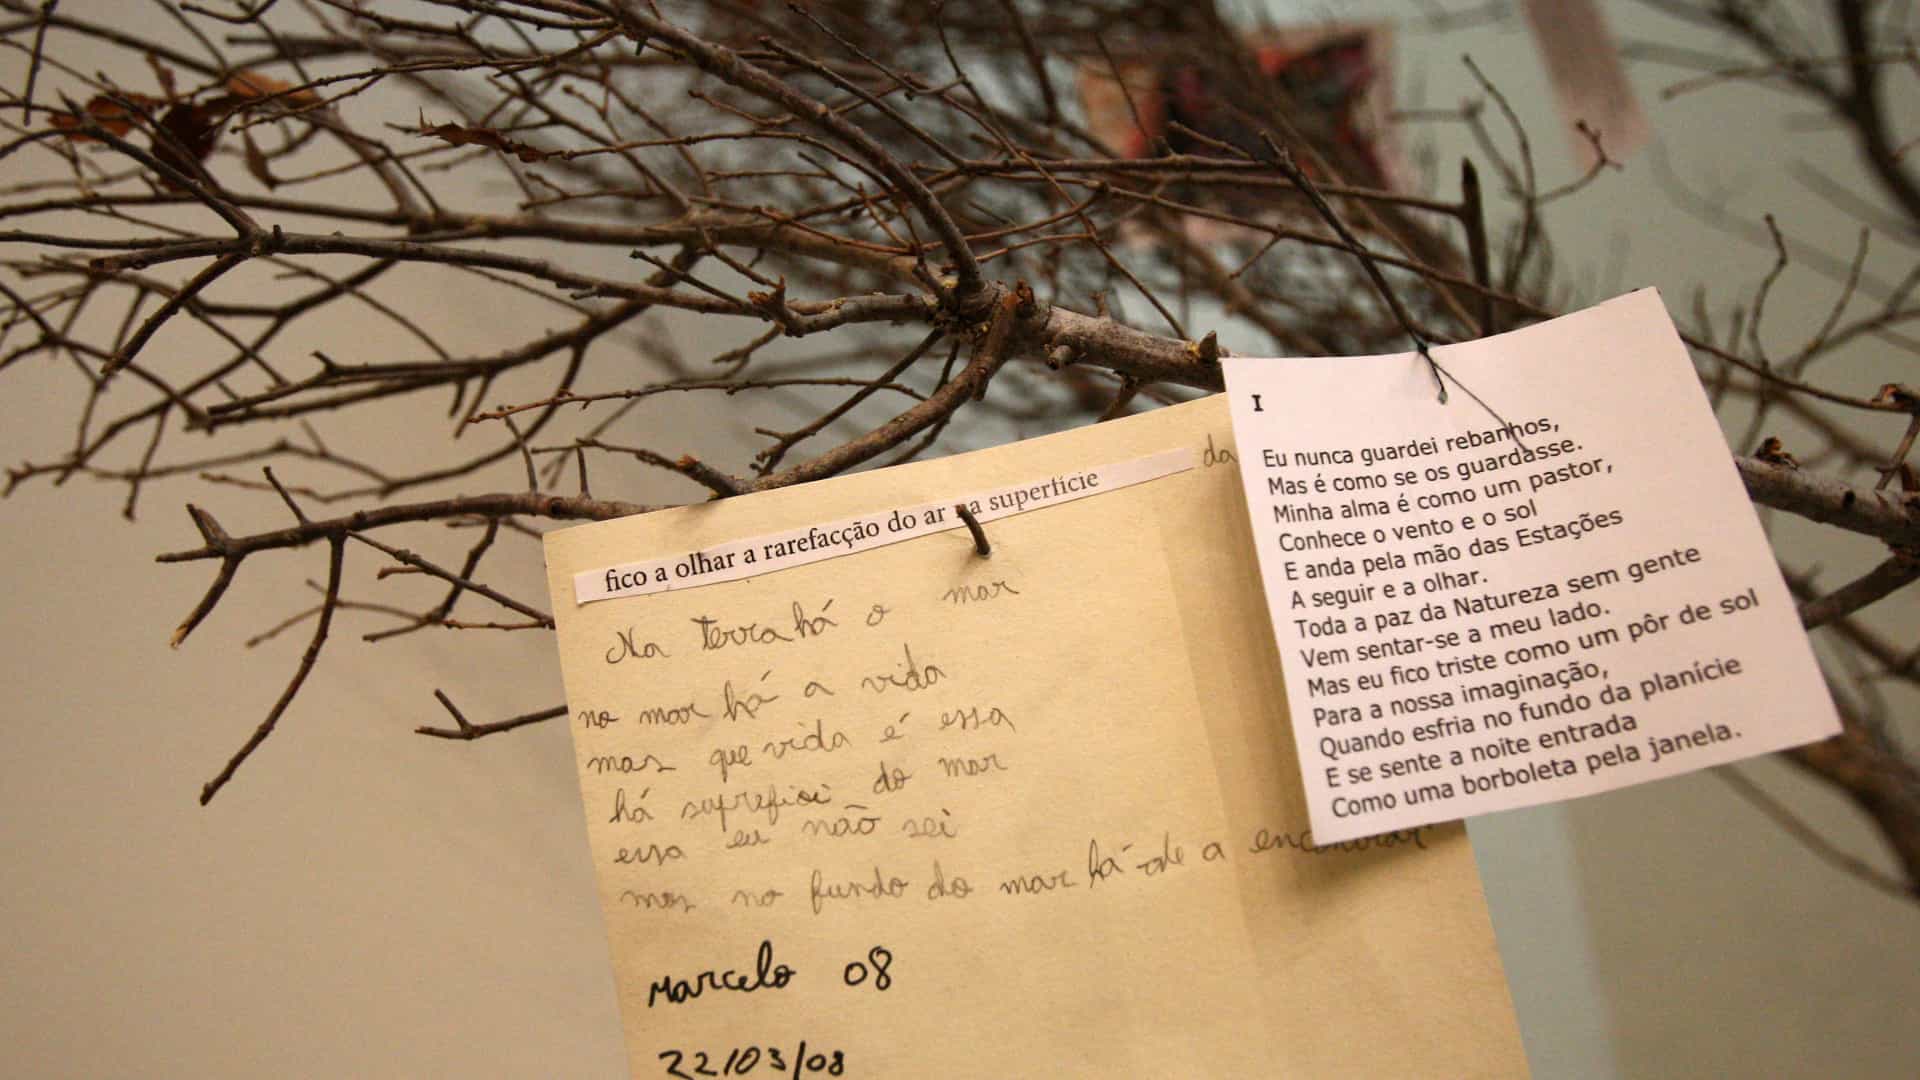 fico a olhar a rarefacção do ar na superfície
da
Na terra há o mar
no mar há a vida
mas que vida é essa
há suprefiçi do mar
essa eu não sei
mas no fundo do mar há-de a encontrar
Marcelo 08
22/03/08
I
Eu nunca guardei rebanhos,
Mas é como se os guardasse.
Minha alma é como um pastor,
Conhece o vento e o sol
E anda pela mão das Estações
A seguir e a olhar.
Toda a paz da Natureza sem gente
Vem sentar-se a meu lado.
Mas eu fico triste como um pôr de sol
Para a nossa imaginação,
Quando esfria no fundo da planície
E se sente a noite entrada
Como uma borboleta pela janela.